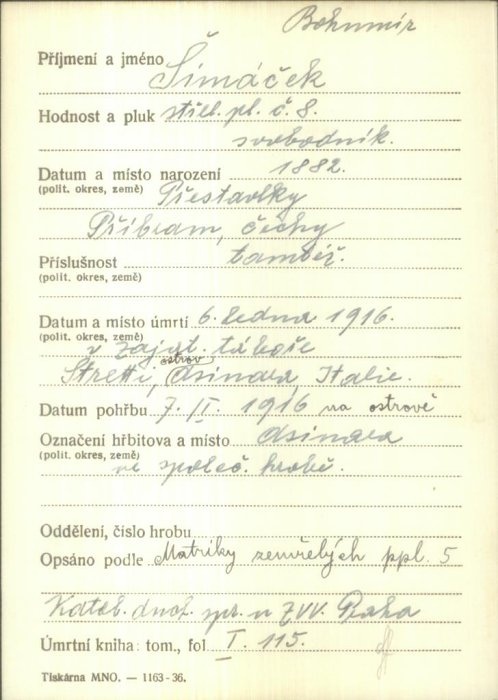 Bohumír
Příjmení a jméno Šimáček
Hodnost a pluk střel. pl. č. 8.
svobodník.
Datum a místo narození 1882.
(polit. okres, země) Přestavlky
Příbram, Čechy
Příslušnost tamtéž.
(polit. okres, země)
Datum a místo úmrtí 6. ledna 1916.
(polit. okres, země) v zajat. táboře
ostrov
Stretti, Asinara, Italie.
Datum pohřbu 7. I. 1916 na ostrově
Označení hřbitova a místo Asinara
(polit. okres, země) ve společ. hrobě.
Oddělení, číslo hrobu
Opsáno podle Matriky zemřelých ppl. 5
Katol. duch. spr. u ZVV. Praha
Úmrtní kniha: tom., fol I. 115.
Tiskárna MNO. — 1163-36.